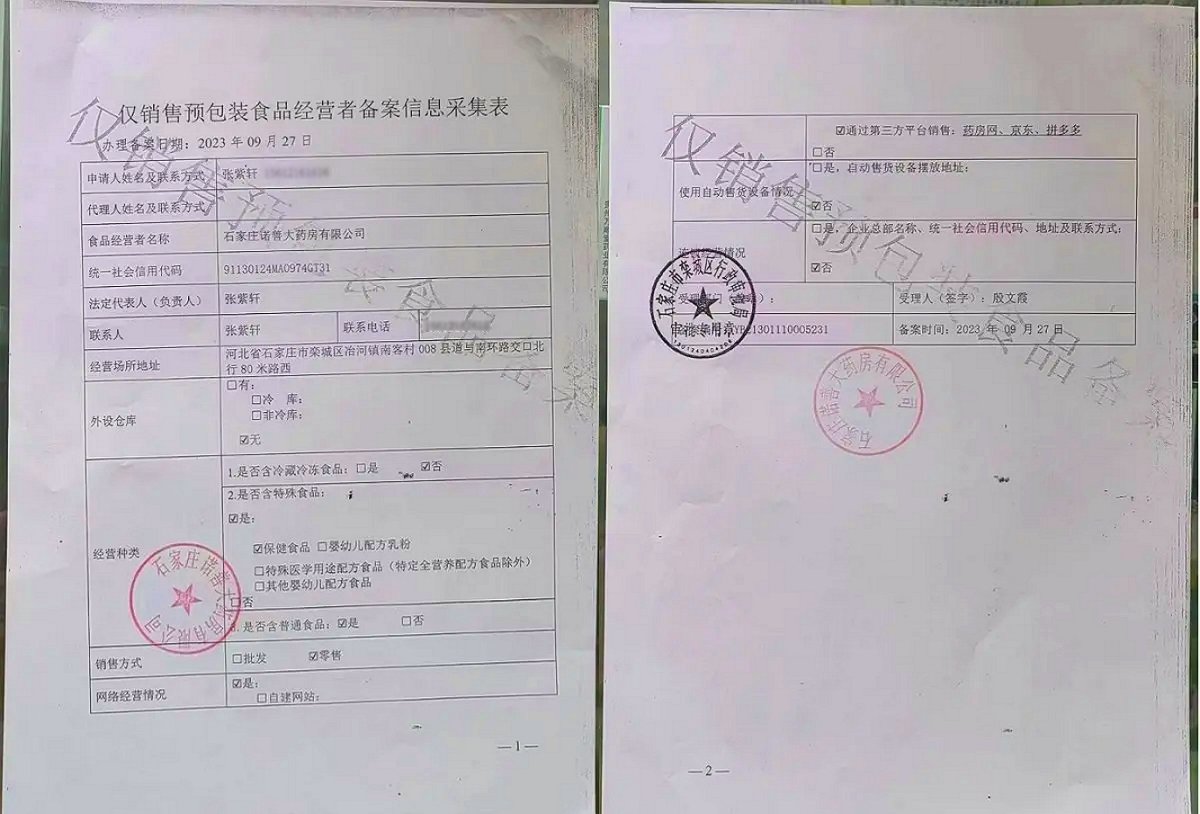 仅销售预包装食品经营者备案信息采集表
办理备案日期：2023 年 09 月 27 日
申请人姓名及联系方式 张紫轩
代理人姓名及联系方式
食品经营者名称 石家庄诺善大药房有限公司
统一社会信用代码 91130124MA0974GT31
法定代表人（负责人） 张紫轩
联系人 张紫轩 联系电话
经营场所地址 河北省石家庄市栾城区冶河镇南客村 008 县道与南环路交口北
行 80 米路西
外设仓库 □有：
□冷 库：
□非冷库：
☑无
经营种类 1.是否含冷藏冷冻食品：□是 ☑否
2.是否含特殊食品：
☑是：
☑保健食品 □婴幼儿配方乳粉
□特殊医学用途配方食品（特定全营养配方食品除外）
□其他婴幼儿配方食品
□否
3.是否含普通食品：☑是 □否
销售方式 □批发 ☑零售
网络经营情况 ☑是：
□自建网站：
石家庄诺善大药房有限公司
—1—
仅销售预包装食品备案
☑通过第三方平台销售：药房网、京东、拼多多
□否
使用自动售货设备情况 □是，自动售货设备摆放地址：
☑否
连锁经营情况 □是，企业总部名称、统一社会信用代码、地址及联系方式：
☑否
受理人（签字）：殷文霞
备案时间：2023 年 09 月 27 日
石家庄市栾城区行政审批局
审批专用章
石家庄诺善大药房有限公司
仅销售预包装食品备案
—2—